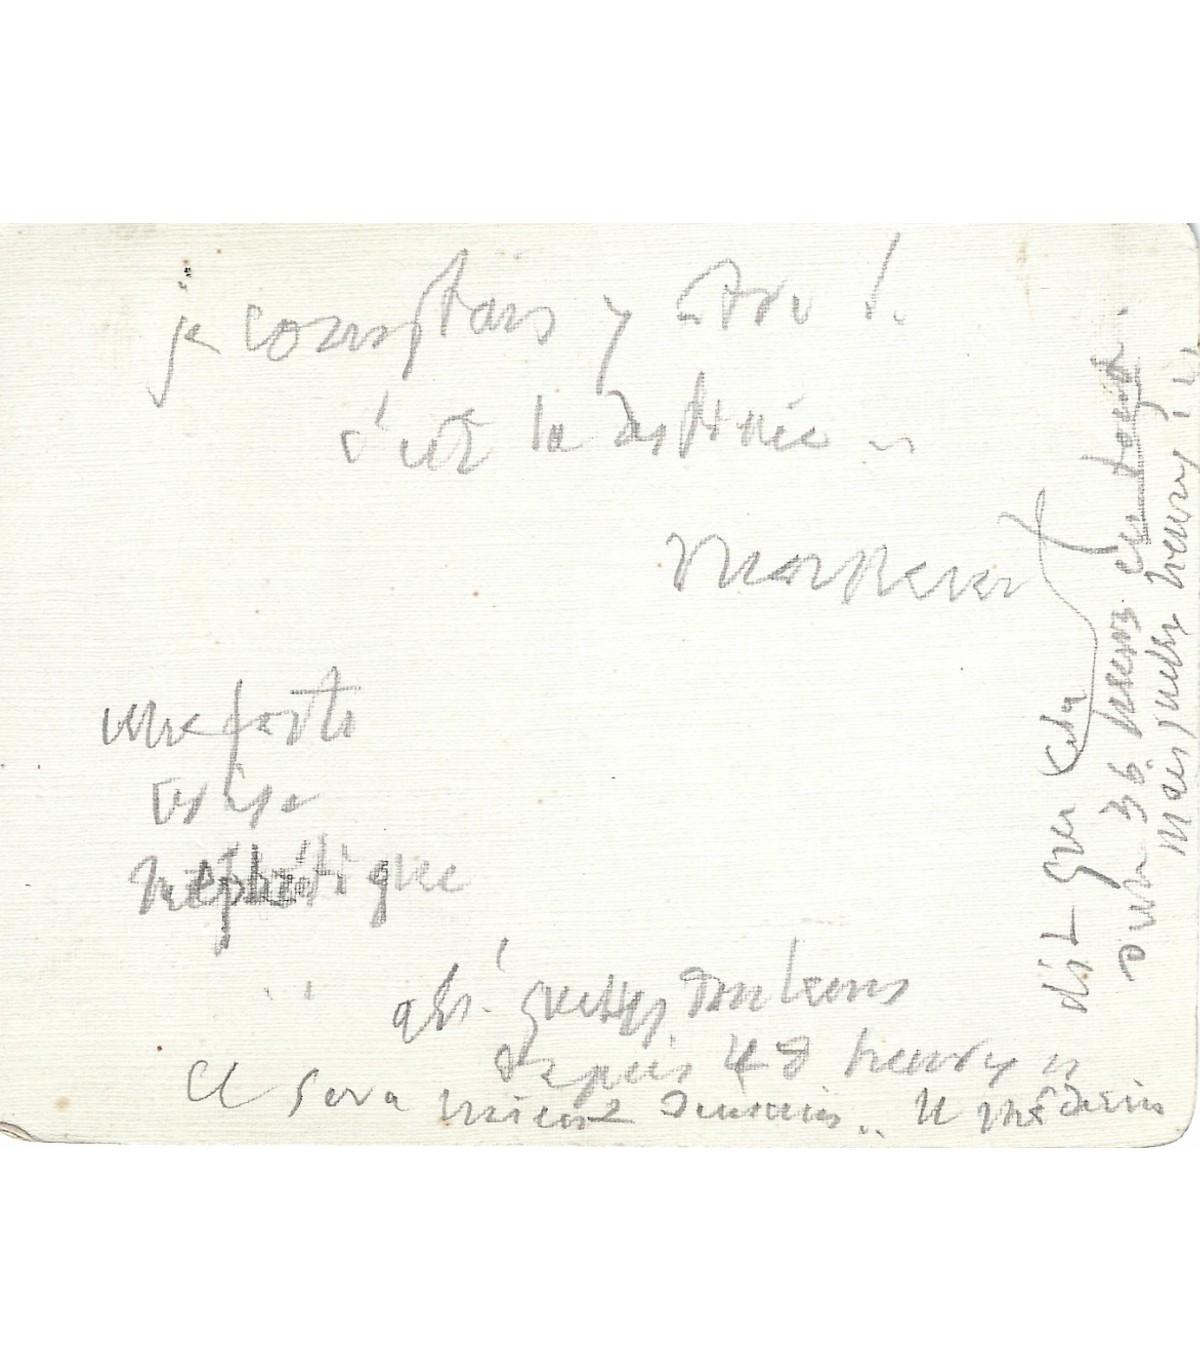 je comptais y être !.
c'est la destinée ..
une forte
crise
néphrétique
ah! quelles douleurs
depuis 48 heures ..
Ce sera mieux demain .. le médecin
dit que cela
dure 36 heures
Mais quelles heures